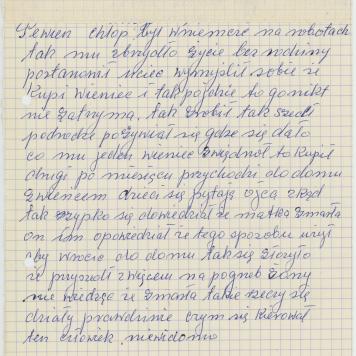 Pewien chłop był w niemcze na robotach
tak mu zbrzydło życie bez rodziny
postanowił uciec wymyślił sobie że
kupi wieniec i tak pojdzie to go nikt
nie zatrzyma, tak zrobił tak szedł
podrodze pożywiał się gdzie się dało
co mu jeden wieniec zwiądnoł to kupił
drugi po miesiącu przychodzi do domu
z wiencem dzieci się pytają ojca zkąd
tak szypko się dowiedział że matka zmarła
on im opowiedział że tego sposobu użył
aby wrocić do domu tak się złożyło
że przyszedł z więcem na pogrzeb żony
nie wiedząc że zmarła takie rzeczy się
działy prawdziwie czym się kierował
ten człowiek niewidomo